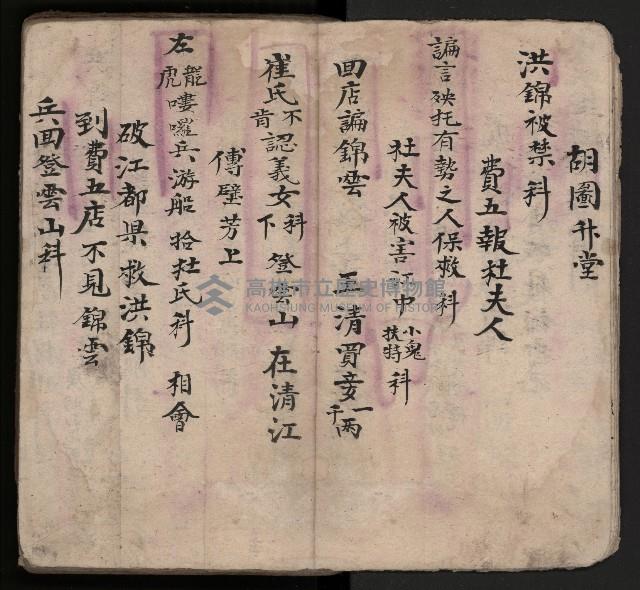 胡圖升堂
洪錦被禁科
費五報社夫人
諞言殃托有勢之人保救科
社夫人被害江中小鬼扶持科
回店諞錦雲 王清買妾一千兩
崔氏不肯認義女科下 登雲山在清江
傅璧芳上
左龍虎嘍囉兵游船 拾社氏科 相會
破江都県救洪錦
到費五店不見錦雲
兵回登雲山科
高雄市立歷史博物館
KAOHSIUNG MUSEUM OF HISTORY